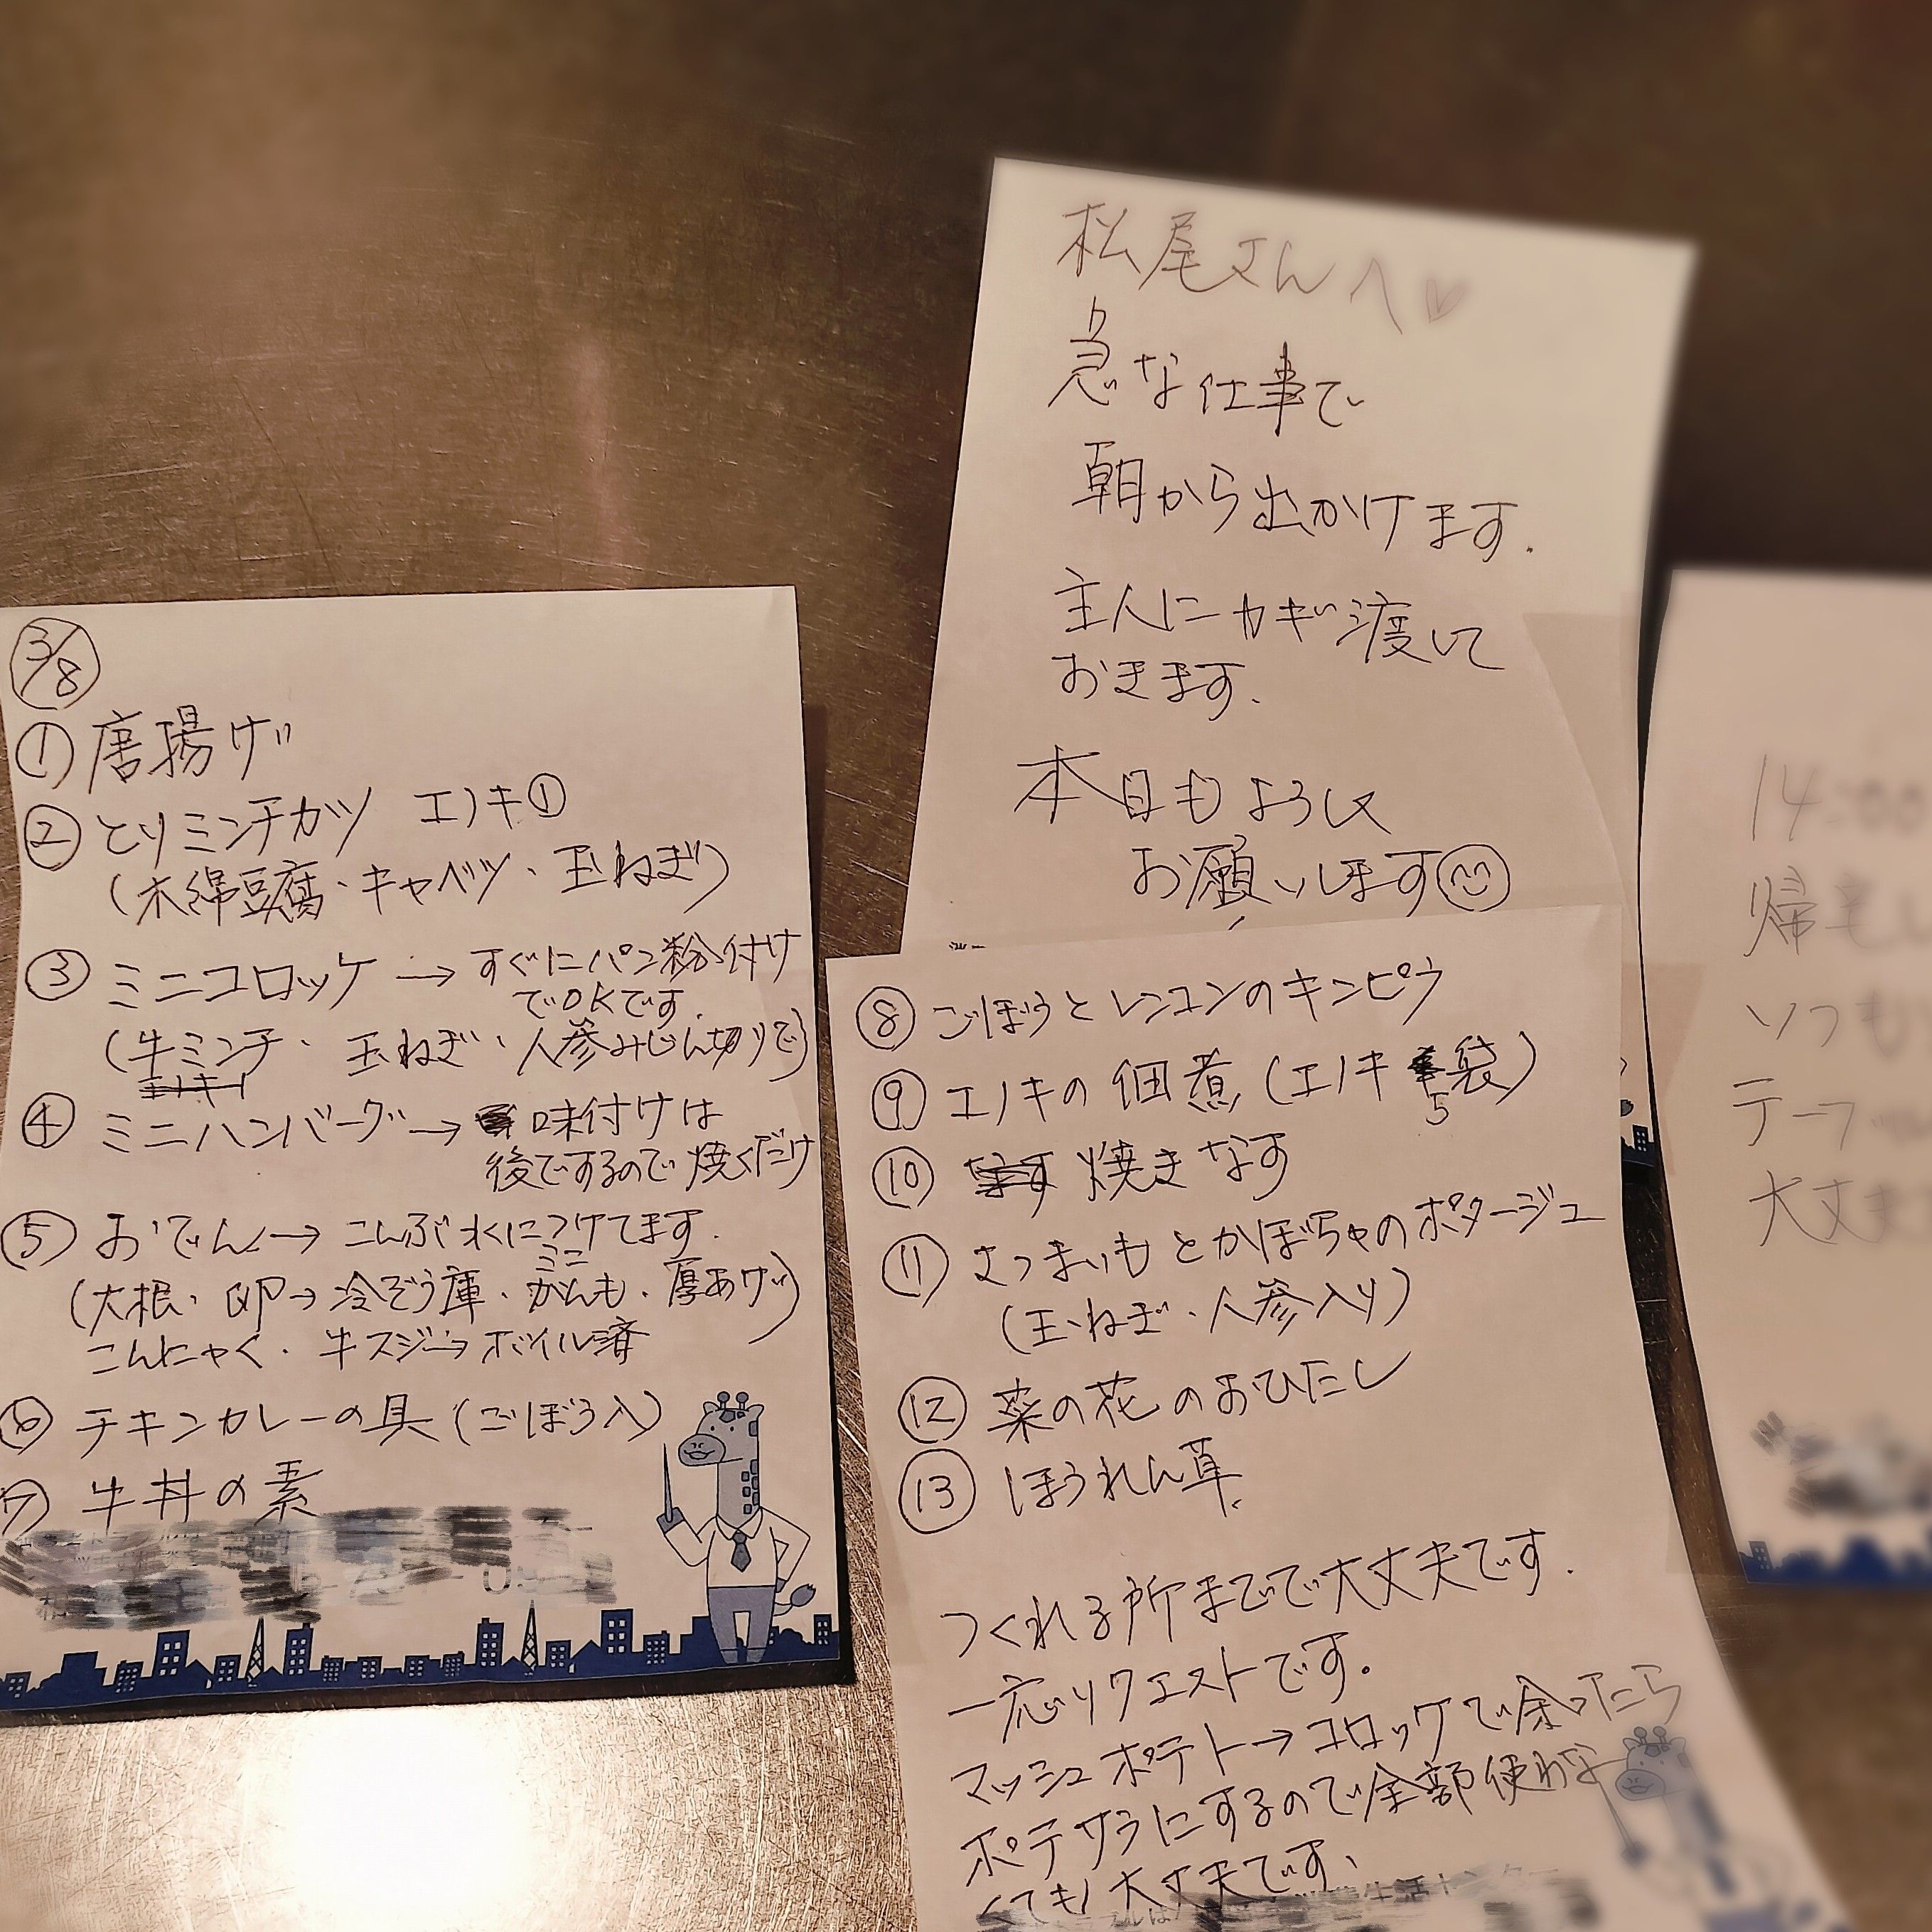 3/8
① 唐揚げ
② とりミンチカツ エノキ①
(木綿豆腐・キャベツ・玉ねぎ)
③ ミニコロッケ → すぐにパン粉付け
でOKです.
(牛ミンチ・玉ねぎ・人参みじん切りで)
④ ミニハンバーグ → 味付けは
後でするので焼くだけ
⑤ おでん → こんぶ水につけてます.
(大根・卵→冷ぞう庫・ミニがんも・厚あげ)
こんにゃく・牛スジ→ボイル済
⑥ チキンカレーの具(ごぼう入)
⑦ 牛丼の素
松尾さんへ♡
急な仕事で
朝から出かけます.
主人にカギ渡して
おきます.
本日もよろしく
お願いします
⑧ ごぼうとレンコンのキンピラ
⑨ エノキの佃煮(エノキ5袋)
⑩ 焼きなす
⑪ さつまいもとかぼちゃのポタージュ
(玉ねぎ・人参入り)
⑫ 菜の花のおひたし
⑬ ほうれん草.
つくれる所までで大丈夫です.
一応リクエストです。
マッシュポテト→コロッケで余ったら
ポテサラにするので全部使わな
くても大丈夫です.
14:00
帰宅し
いつも
テーブル
大丈夫